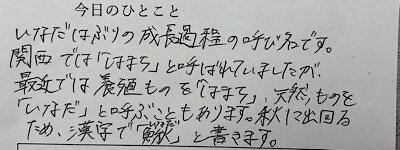 今日のひとこと
いなだはぶりの成長過程の呼び名です。
関西では「はまち」と呼ばれていましたが、
最近では養殖ものを「はまち」、天然ものを
「いなだ」と呼ぶこともあります。秋に出回る
ため、漢字で「鰍」と書きます。